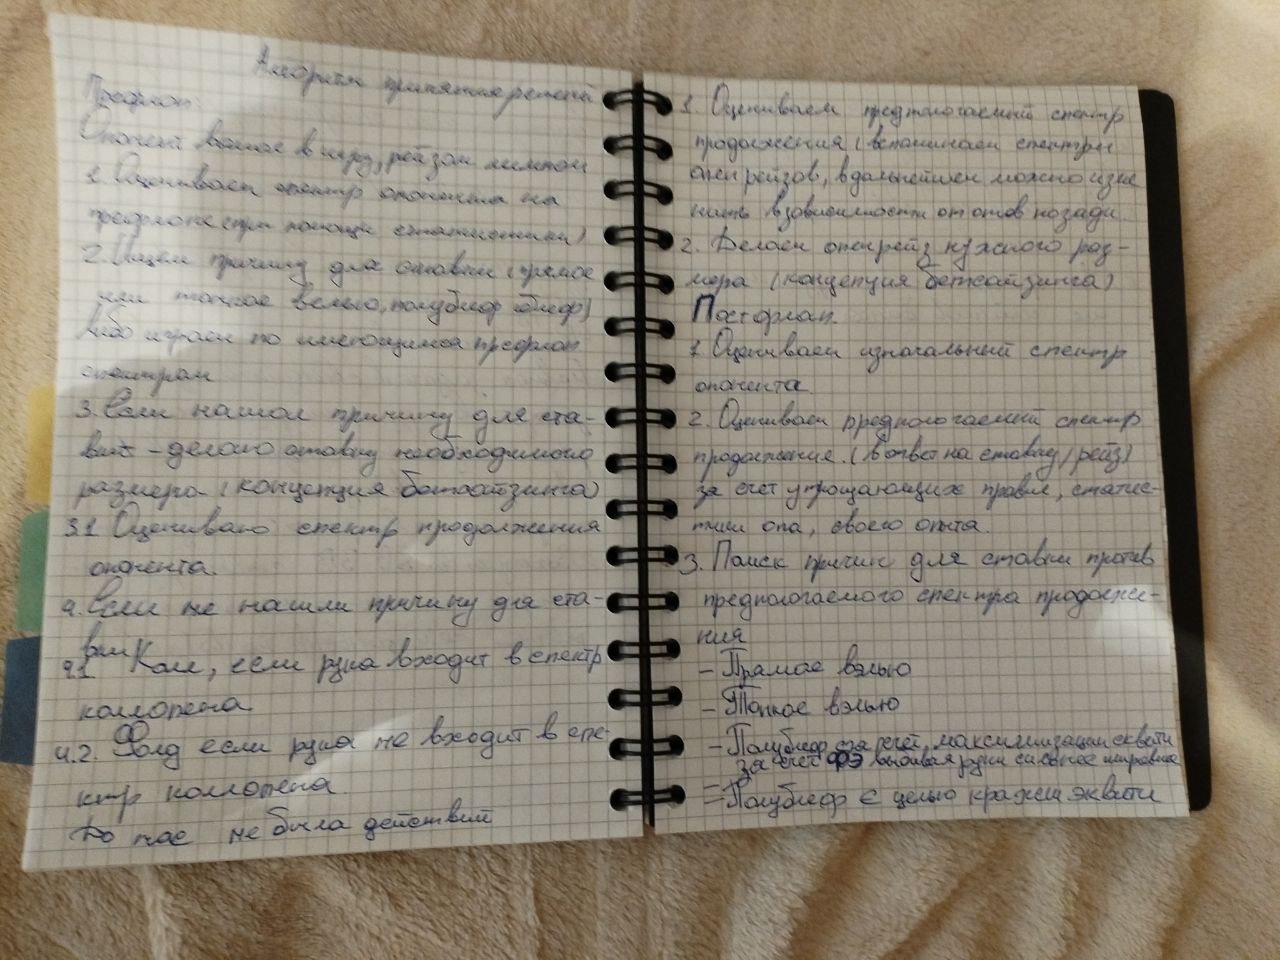 Алгоритм принятия решений
Префлоп:
Опонент вошол в игру, рейзом лимпом
1. Оцениваем спектр опонента на
префлопе (при помощи статистики)
2. Ищем причину для ставки (прямое
или тонкое велью, полублеф блеф)
либо играем по имеющимся префлоп
спектрам
3. Если нашол причину для ста-
вки - делаю ставку необходимого
размера. (концепция бетсайзинга)
3.1 Оцениваю спектр продолжения
опонента.
4. Если не нашли причину для ста-
вки
4.1 Кол, если рука входит в спектр
коллопена
4.2. Фолд если рука не входит в спе-
ктр коллопена
До нас не было действий
1. Оцениваем предпологаемый спектр
продолжения (вспоминаем спектры
опенрейзов, в дальнейшем можно изме
нить в зависимости от опов позади.
2. Делаем опенрейз нужного раз-
мера (концепция бетсайзинга)
Постфлоп.
1. Оцениваем изначальный спектр
опонента.
2. Оцениваем предпологаемый спектр
продолжения. (в ответ на ставку/рейз)
за счет упрощающих правил, статис-
тики опа, своего опыта.
3. Поиск причин для ставки против
предпологаемого спектра продолже-
ния
- Прямое вэлью
- Тонкое вэлью
- Полублеф за счёт максимизации еквити
за счет ФЭ выбивая руки сильнее
- Полублеф с целью кражи эквити